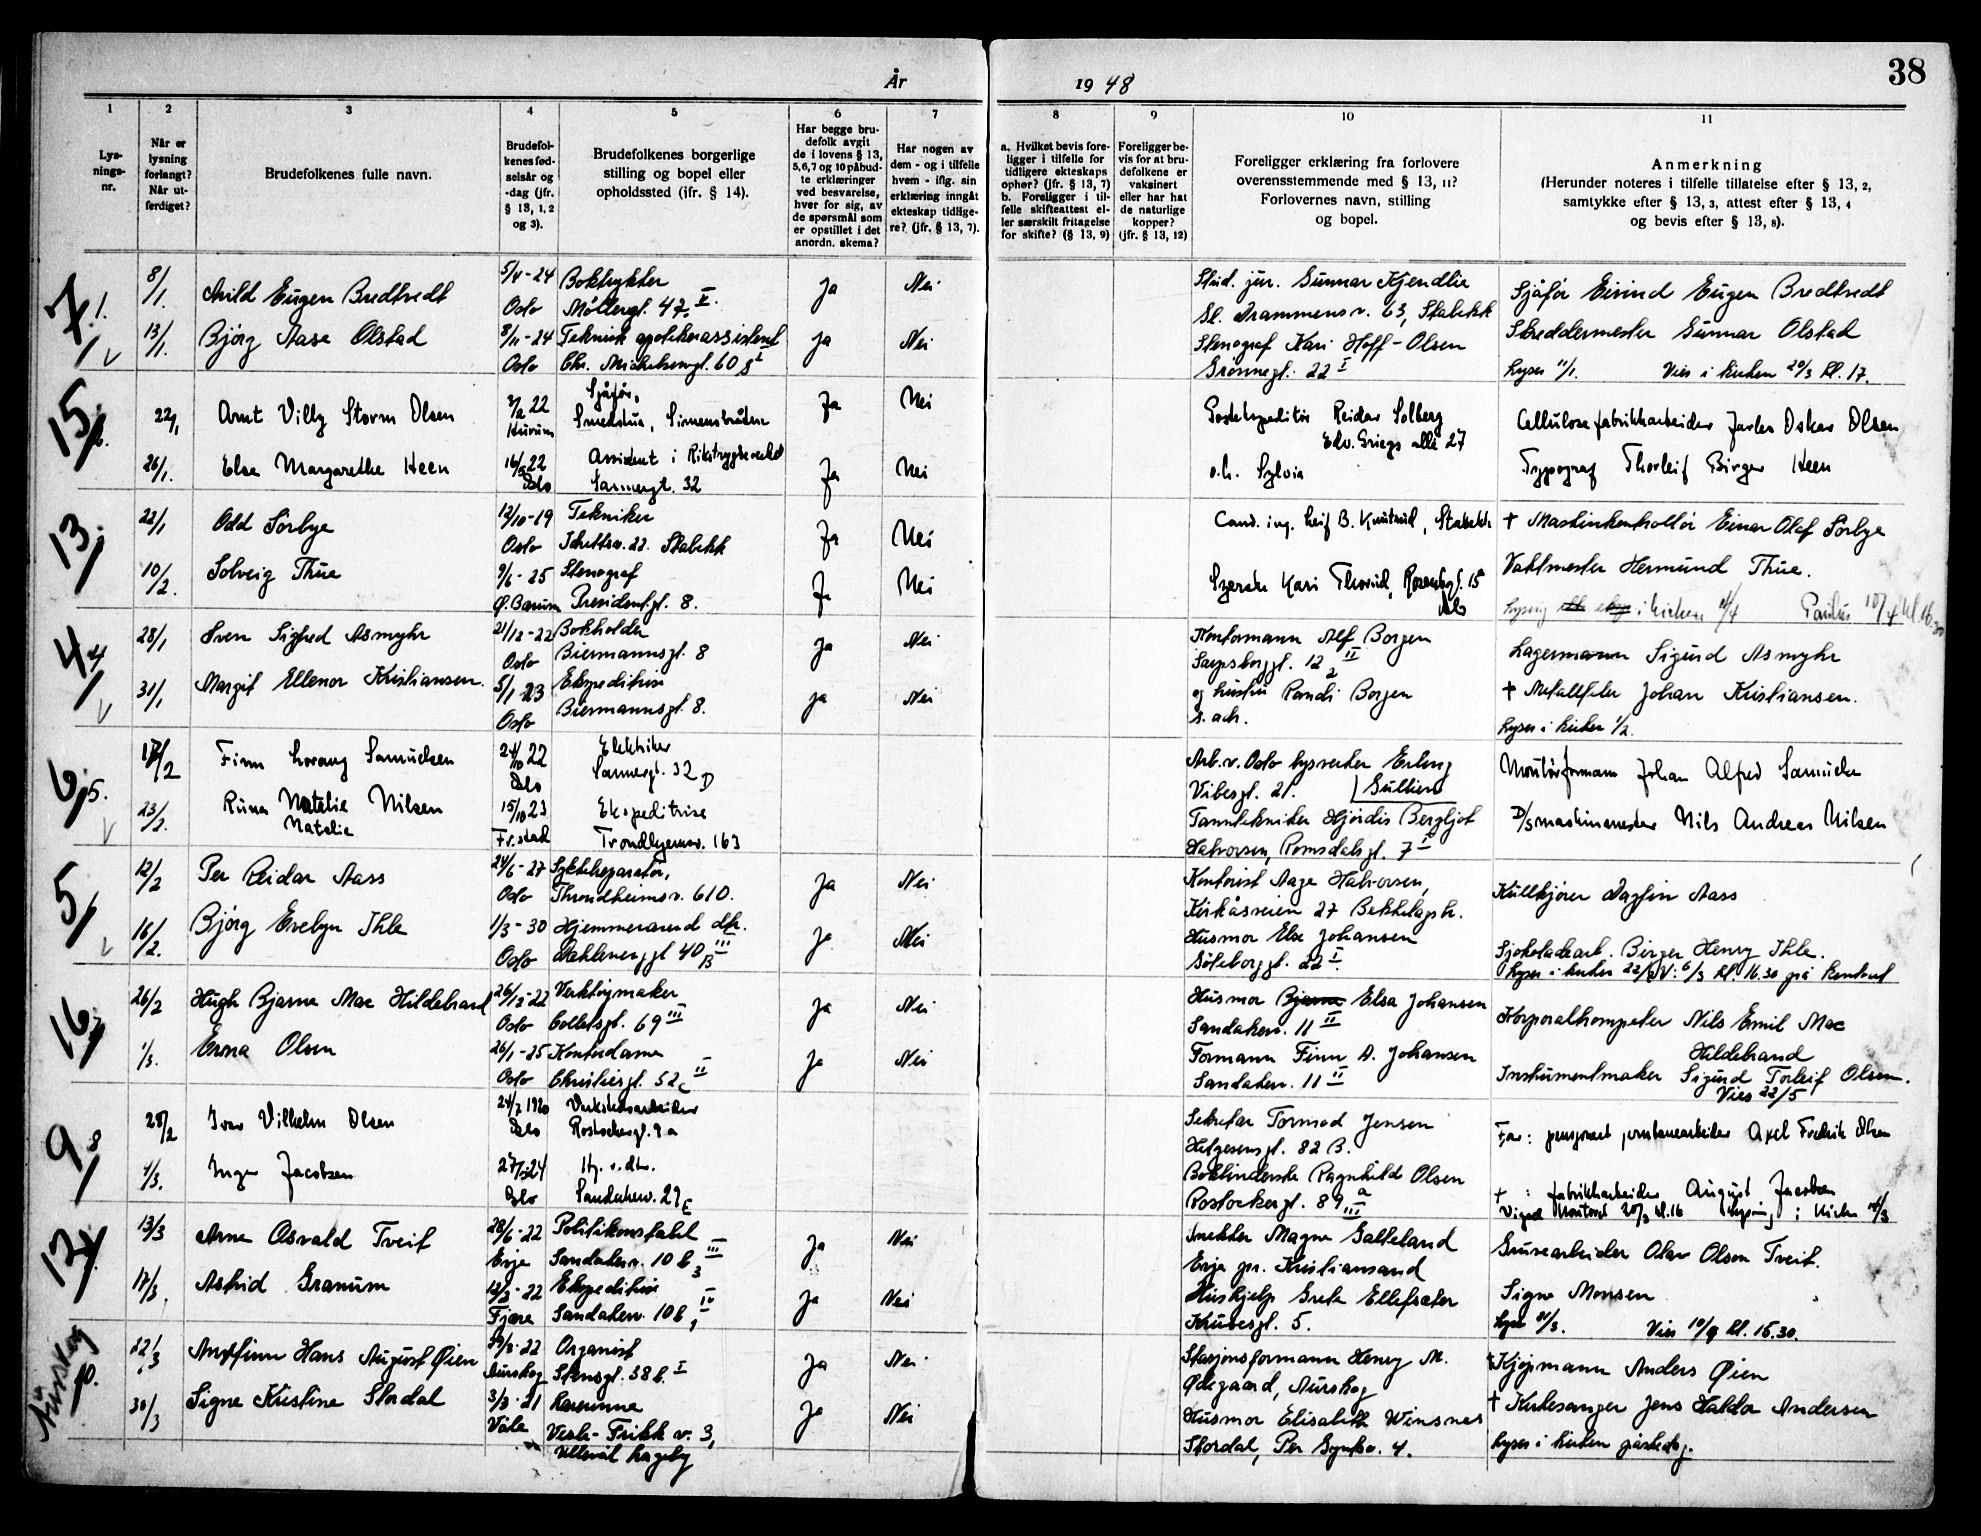 38
År 1948
1
2
3
4
5
6
7
8
9
10
11
Lysnings-nr.
Når er lysning forlangt? Når utferdiget?
Brudefolkenes fulle navn.
Brudefolkenes fødselsår og -dag (jfr. § 13, 1, 2 og 3).
Brudefolkenes borgerlige stilling og bopel eller opholdssted (ifr. § 14).
Har begge brudefolk avgit de i lovens § 13, 5, 6, 7 og 10 påbudte erklæringer ved besvarelse, hver for sig, av de spørsmål som er opstillet i det anordn. skema?
Har nogen av dem - og i tilfelle hvem - iflg. sin erklæring inngåt ekteskap tidligere? (jfr. § 13, 7).
a. Hvilket bevis foreligger i tilfelle for tidligere ekteskaps ophør? (jfr. § 13, 7) b. Foreligger i tilfelle skifteattest eller særskilt fritagelse for skifte? (§ 13, 9)
Foreligger bevis for at brudefolkene er vaksinert eller har hat de naturlige kopper? (jfr. § 13, 12)
Foreligger erklæring fra forlovere overensstemmende med § 13, 11? Forlovernes navn, stilling og bopel.
Anmerkning (Herunder noteres i tilfelle tillatelse efter § 13, 2, samtykke efter § 13, 3, attest efter § 13, 4 og bevis efter § 13, 8).
7. 1. 8/1. Arild Eugen Bredtvedt 5/4-24 Boktrykker Ja Nei Stud. jur. Gunnar Kjendlie Sjåfør Eivind Eugen Bredtvedt
Oslo Møllergt. 47 Gl. Drammensv. 63, Stabekk
13/1. Bjørg Aase Olstad 8/11-24 Teknisk apotekerassistent Ja Nei Stenograf Kari Hoff-Olsen Skreddermester Gunnar Olstad
Oslo Chr. Michelsensgt. 60 Grønnegt. 22 I Lyses 11/1. Vies i kirken 20/3 kl. 17.
15. 22/1 Arnt Villy Storm Olsen 22 Sjåfør, Ja Nei Postekspeditør Reidar Solberg Cellulosefabrikkarbeider Jarles Oskar Olsen
Hurum Smedstua, Simensbråten Edv. Griegs allé 27
26/1. Else Margarethe Heen 22 Assistent i Rikstrygdeverket Ja Nei Sylvia Typograf Thorleif Birger Heen
Oslo Sannergt. 32
13. 22/1 Odd Sörbye 12/10-19 Tekniker Ja Nei Cand. ing. Leif B. Knutrud, Stabekk † Maskinkontrollør Einar Olaf Sörbye
Oslo 22. Stabekk
10/2. Solveig Thue 9/6-25 Stenograf Ja Nei Kari Thorud, 15 Vaktmester Hermund Thue.
Ø. Bærum Presidentgt. 8. Oslo i kirken 4/4 Paulus 10/4 kl. 16.30
4 4 28/1 Sven Sigfred Asmyhr 21/12-22 Bokholder Ja Nei Kontormann Alf Borgen Lagermann Sigurd Asmyhr
Oslo Biermannsgt. 8 Sarpsborggt. 12 II
31/1 Margit Ellenor Kristiansen. 5/1 23 Ekspeditrise Ja Nei og hustru Randi Borgen † Metallsliper Johan Kristiansen.
Oslo Biermannsgt. 8. s. adr. Lyses i kirken 1/2.
6. 5. 17/2 Finn Lorang Samuelsen 24/10 22 Elektriker Arb. v. Oslo lysverker Erling Montørformann Johan Alfred Samuelsen
Oslo Sannergt. 32 D Vibesgt. 21. Gulliksen
23/2. Runa Natalie Nilsen 15/10 23 Ekspeditrise Tanntekniker Hjørdis Bergljot D/Smaskinmester Nils Andreas Nilsen
Natalie Fr.stad Trondhjemsv. 163 Halvorsen, Romsdalsgt. 7 I
5 12/2 Per Reidar Aass 24/6-27 Sykkelreparatør, Ja Nei Kontorist Aage Halvorsen, Kullkjører Dagfin Aass
Oslo Throndheimsv. 610. Kirkåsveien 27 Bekkelagsh.
16/2. Bjørg Evelyn Ihle 1/3-30 Hjemmeværend dtr. Ja Nei Husmor Else Johansen Sjokoladearb. Birger Henry Ihle.
Oslo Dælenenggt 40 B III Gøteborggt. 22 I. Lyses i kirken 22/2 V: 6/3 kl. 16.30 på kontoret
16 26/2 Hugh Bjarne Mac Hildebrand 26/12-22 Verktøymaker Ja Nei Husmor Bjarne Elsa Johansen Korporalkompeter Nils Emil Mac
Oslo Colletsgt. 69 III Sandakerv. 11 II Hildebrand
1/3. Erna Olsen 26/1-25 Kontordame Ja Nei Formann Finn A. Johansen Instrumentmaker Sigurd Torleif Olsen.
Oslo Christiesgt. 52 c II Sandakerv. 11 II Vies 22/5
9 8 28/2 Ivar Vilhelm Olsen 24/7 1920 Verkstedsarbeider Sekretær Tormod Jensen Far: pensjonert Axel Fredrik Olsen
Oslo Rostockergt. 9 a Helgesensgt. 82 B.
4/3. Inger Jacobsen 24 Hj. v. dtr. Bokbinderske Ragnhild Olsen † : fabrikkarbeider August Jacobsen
Oslo Sandakerv. 29 E Rostockergt. 89 a III Kontoret 20/3 kl. 16 i kirken
12 13/3 Arne Osvald Tveit 28/6-22 Politikonstabel Ja Nei Snekker Magne Galteland Gruvearbeider Olav Olson Tveit.
Evje Sandakerv. 10 b, III Evje pr. Kristiansand
17/3. Astrid Granum 12/2-22 Ekspeditrise Ja Nei Hushjelp Grete Ellefsæter Signe Monsen
Fjære Sandakerv. 10 b, Krusesgt. 5. Lyses 21/3. Vies 10/9 kl. 16.30.
Aurskog 10. 22/3 Arnfinn Hans August Øien 22 Organist Ja Nei Stasjonsformann Henry M. † Kjøpmann Anders Øien
Aurskog Stensgt. 38 b. I Ødegaard, Aurskog
30/3 Signe Kristine Stordal 3/3-21 Lærerinne Ja Nei Husmor Elisabeth Winsnes † Kirkesanger Jens Haldor Andersen
Våle Vesle-Frikk v. 3, Stordal, Per Gyntsv. 4. Lyses i kirken påskedag.
Ullevål hageby